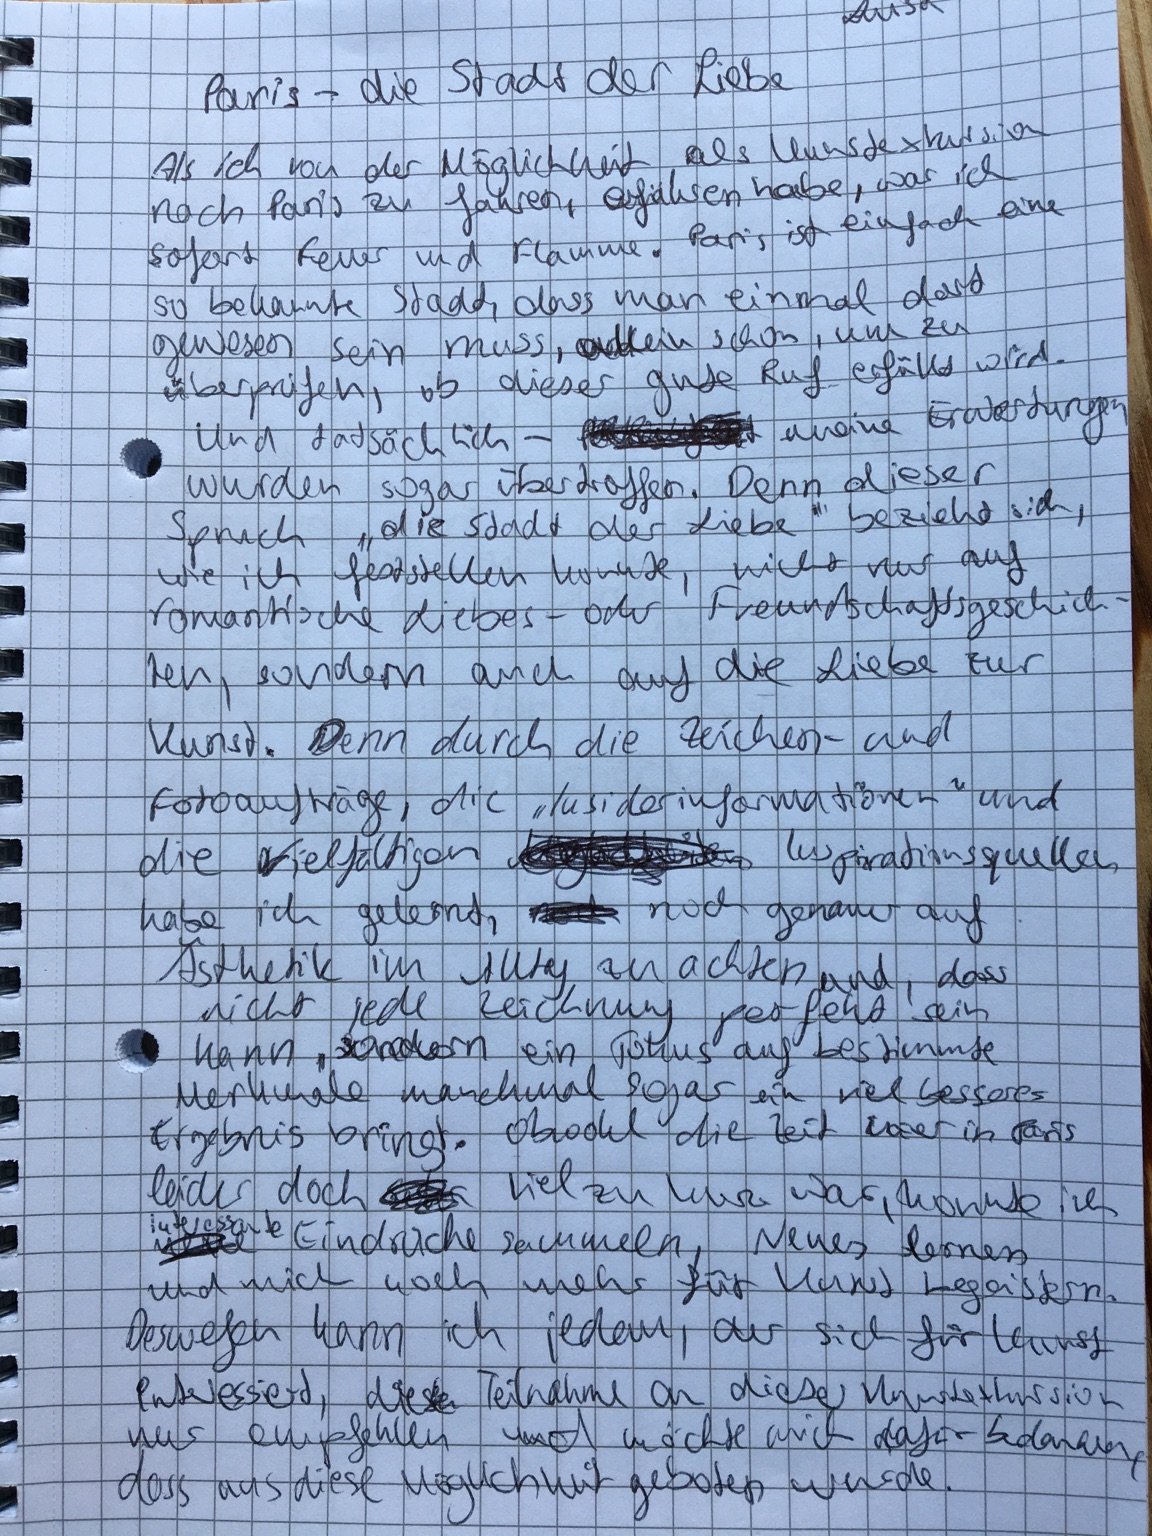 Luisa
Paris – die Stadt der Liebe
Als ich von der Möglichkeit als Kunstexkursion
nach Paris zu fahren, erfahren habe, war ich
sofort Feuer und Flamme. Paris ist einfach eine
so bekannte Stadt, dass man einmal dort
gewesen sein muss, allein schon, um zu
überprüfen, ob dieser gute Ruf erfüllt wird.
Und tatsächlich – meine Erwartungen
wurden sogar übertroffen. Denn dieser
Spruch „die Stadt der Liebe" bezieht sich,
wie ich feststellen konnte, nicht nur auf
romantische Liebes- oder Freundschaftsgeschich-
ten, sondern auch auf die Liebe zur
Kunst. Denn durch die Zeichen- und
Fotoaufträge, die „Insiderinformationen" und
die vielfältigen Inspirationsquellen
habe ich gelernt, noch genauer auf
Ästhetik im Alltag zu achten und, dass
nicht jede Zeichnung perfekt sein
kann, sondern ein Fokus auf bestimmte
Merkmale manchmal sogar ein viel besseres
Ergebnis bringt. Obwohl die Zeit hier in Paris
leider doch viel zu kurz war, konnte ich
interessante Eindrücke sammeln, Neues lernen
und mich noch mehr für Kunst begeistern.
Deswegen kann ich jedem, der sich für Kunst
interessiert, die Teilnahme an dieser Kunstexkursion
nur empfehlen und möchte mich dafür bedanken,
dass uns diese Möglichkeit geboten wurde.